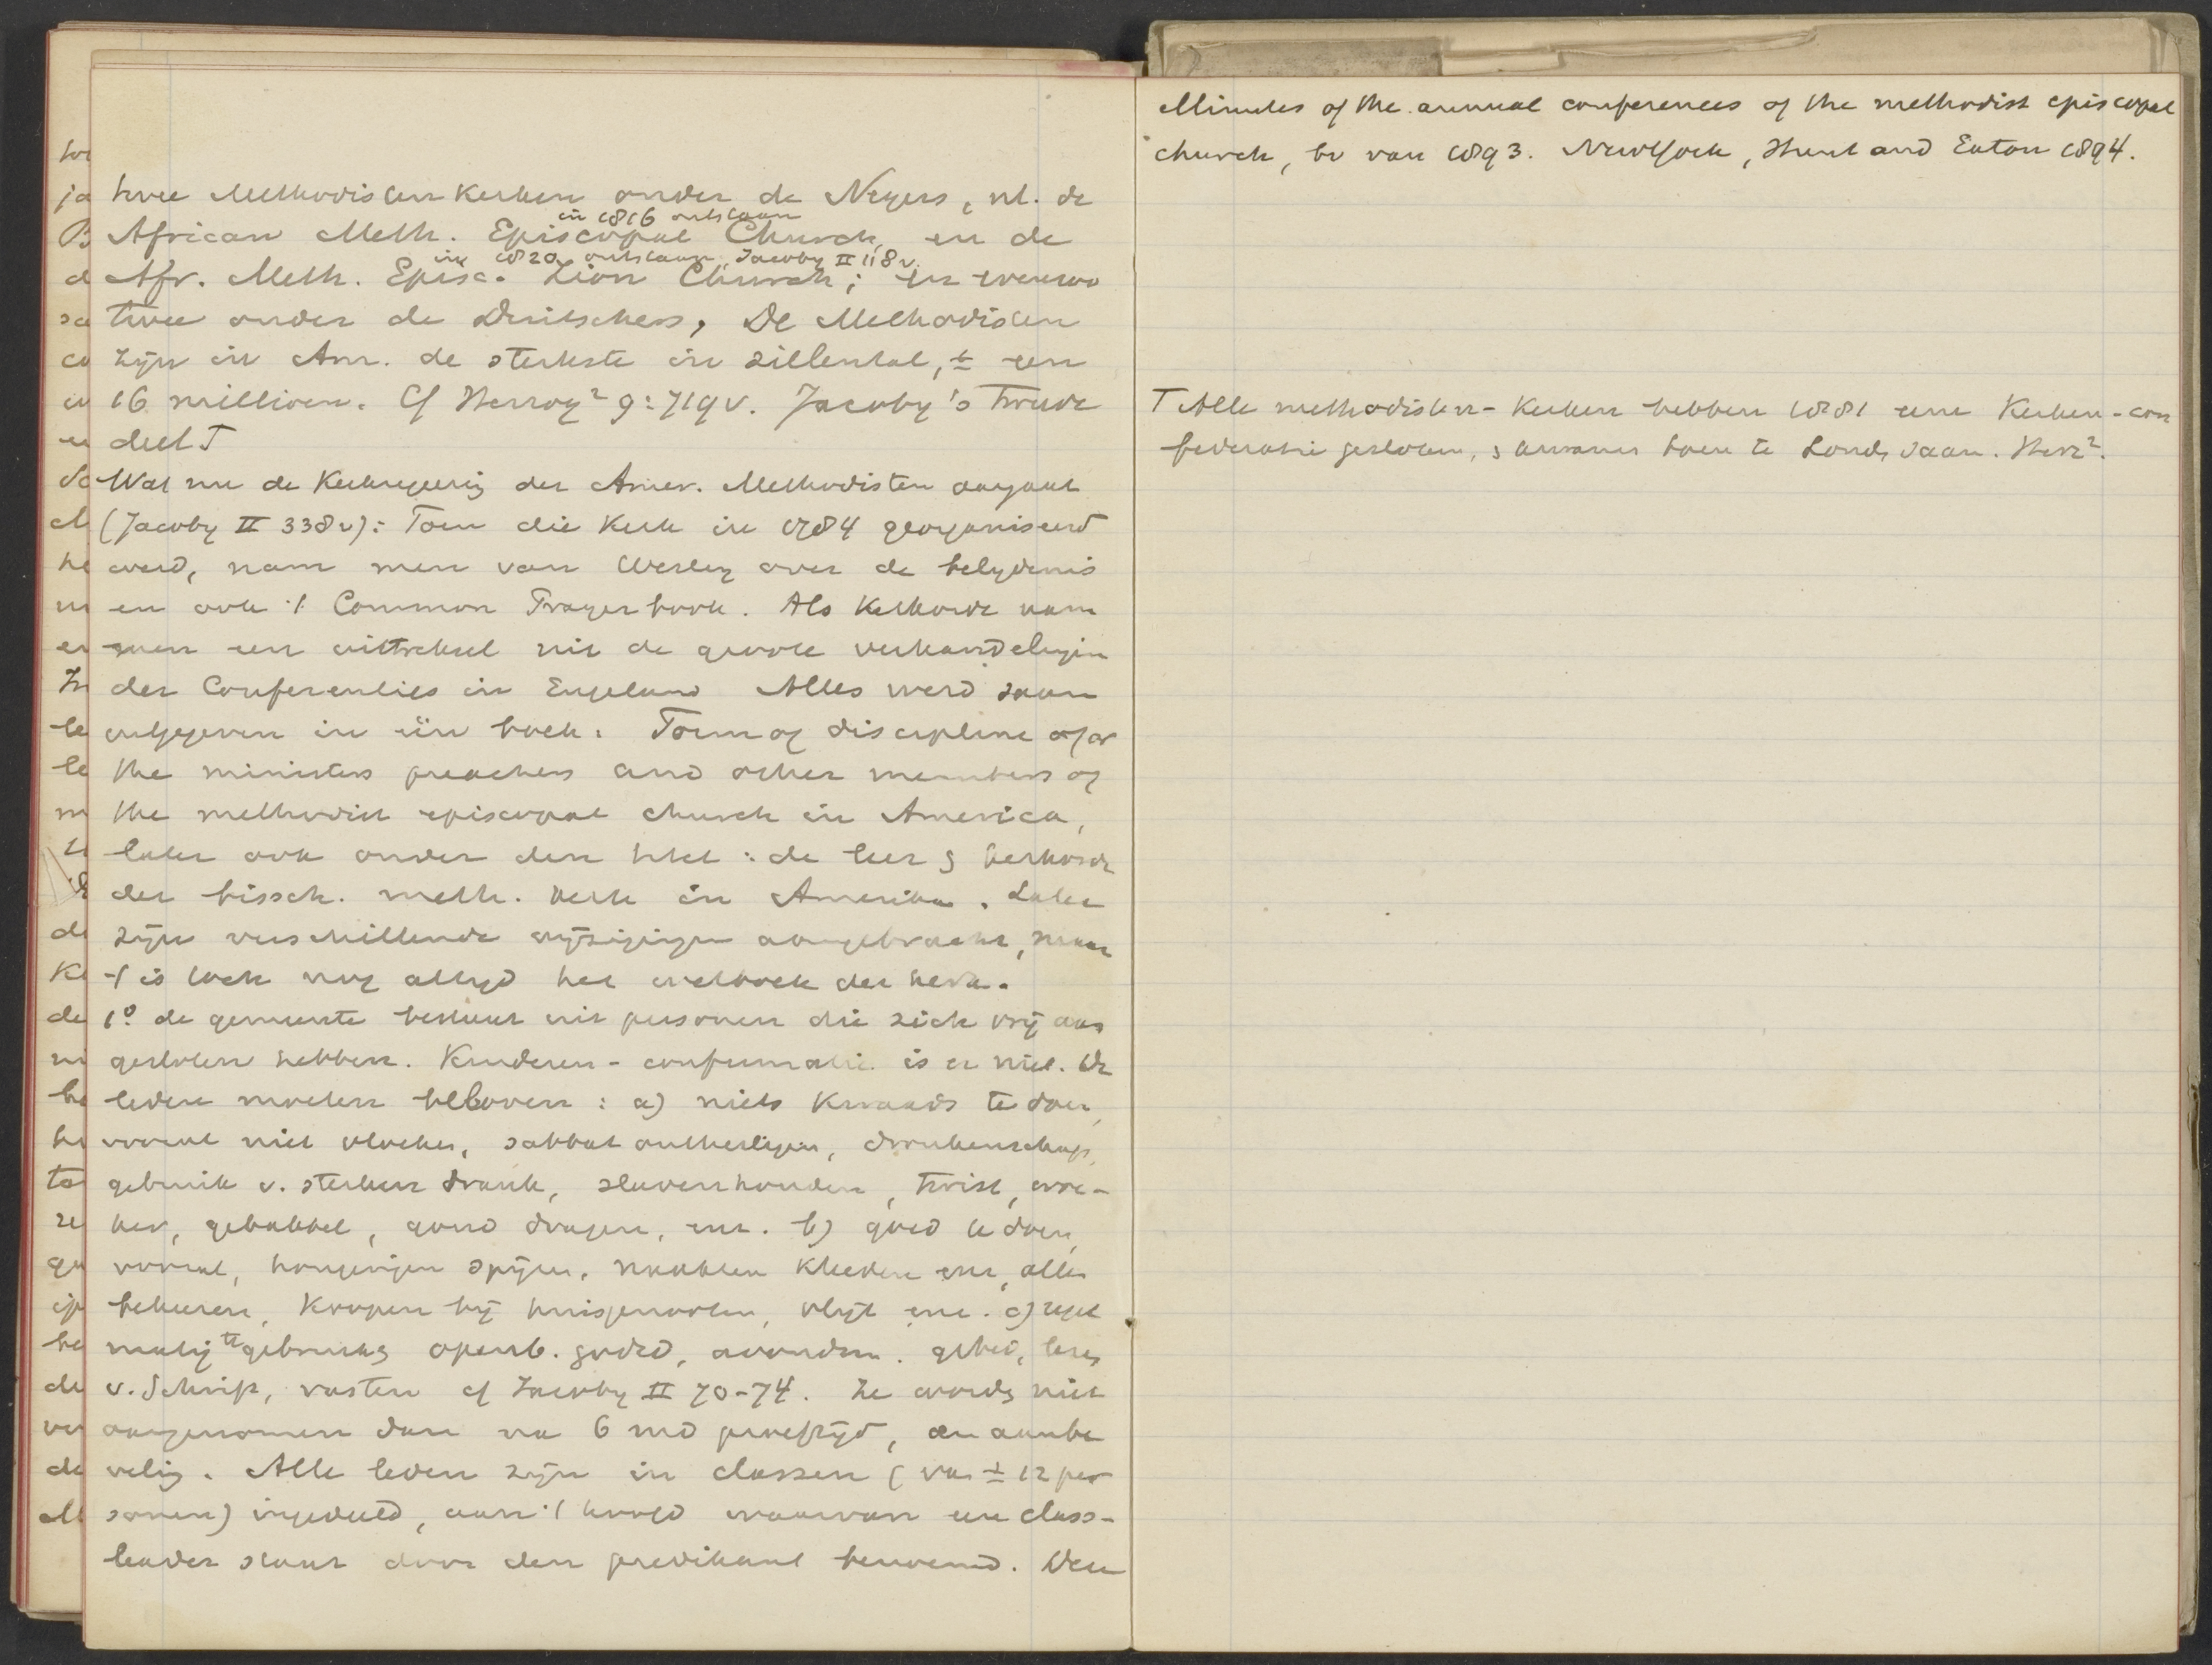 twee Methodisten Kerken onder de Negers, nl. de
in 1816 ontstaan
African Meth. Episcopal Church, en de
in 1820 ontstaan, Jacoby II 118 v.
Afr. Meth. Episc. Zion Church; en evenzo
twee onder de Duitschers, De Methodisten
zijn in Am. de sterkste in zielental, ± een
16 millioen. Cf Herzog² 9:719v. Jacoby's Tweede
deel T
Wat nu de Kerkregeering der Amer. Methodisten aangaat
(Jacoby II 338v): Toen die Kerk in 1784 georganiseerd
werd, nam men van Wesley over de belydenis
en ook 't Common Prayerbook. Als Kerkorde nam
men een uittreksel uit de groote verhandelingen
der Conferenties in Engeland Alles werd saam
uitgegeven in één boek: Form of discipline of or
the ministers preachers and other members of
the methodist episcopal church in America,
later ook onder den titel: de leer & kerkorde
der bissch. meth. Kerk in Amerika. Later
zijn verschillende wijzigingen aangebracht, maar
't is toch nog altyd het wetboek der Kerk.
1° de gemeente bestaat uit personen die zich vrij aan
gesloten hebben. Kinderen-confirmatie is er niet. De
leden moeten beloven: a) niets Kwaads te doen,
vooral niet vloeken, sabbat ontheiligen, dronkenschap,
gebruik v. sterken drank, slavenhouden, twist, woe-
ker, gebabbel, goud dragen, enz. b) goed te doen,
vooral, hongerigen spijzen, naakten Kleeden enz, allen
bekeeren, Koopen bij huisgenooten, vlijt enz. c) regel
matig te gebruiken openb. godsd, avondm. gebed, lezen
v. Schrift, vasten cf Jacoby II 70-74. Ze worden niet
aangenomen dan na 6 md proeftijd, en aanbe
veling. Alle leden zijn in classen (van ± 12 per
sonen) ingedeeld, aan 't hoofd waarvan een class-
leader staat door den predikant benoemd. Den
Minutes of the annual conferences of the methodist episcopal
church, bv van 1893. NewYork, Hunt and Eaton 1894.
T Alle methodisten-Kerken hebben 1881 eene Kerken-con
federatie gesloten, & kwamen toen te Londen saam. Herz².